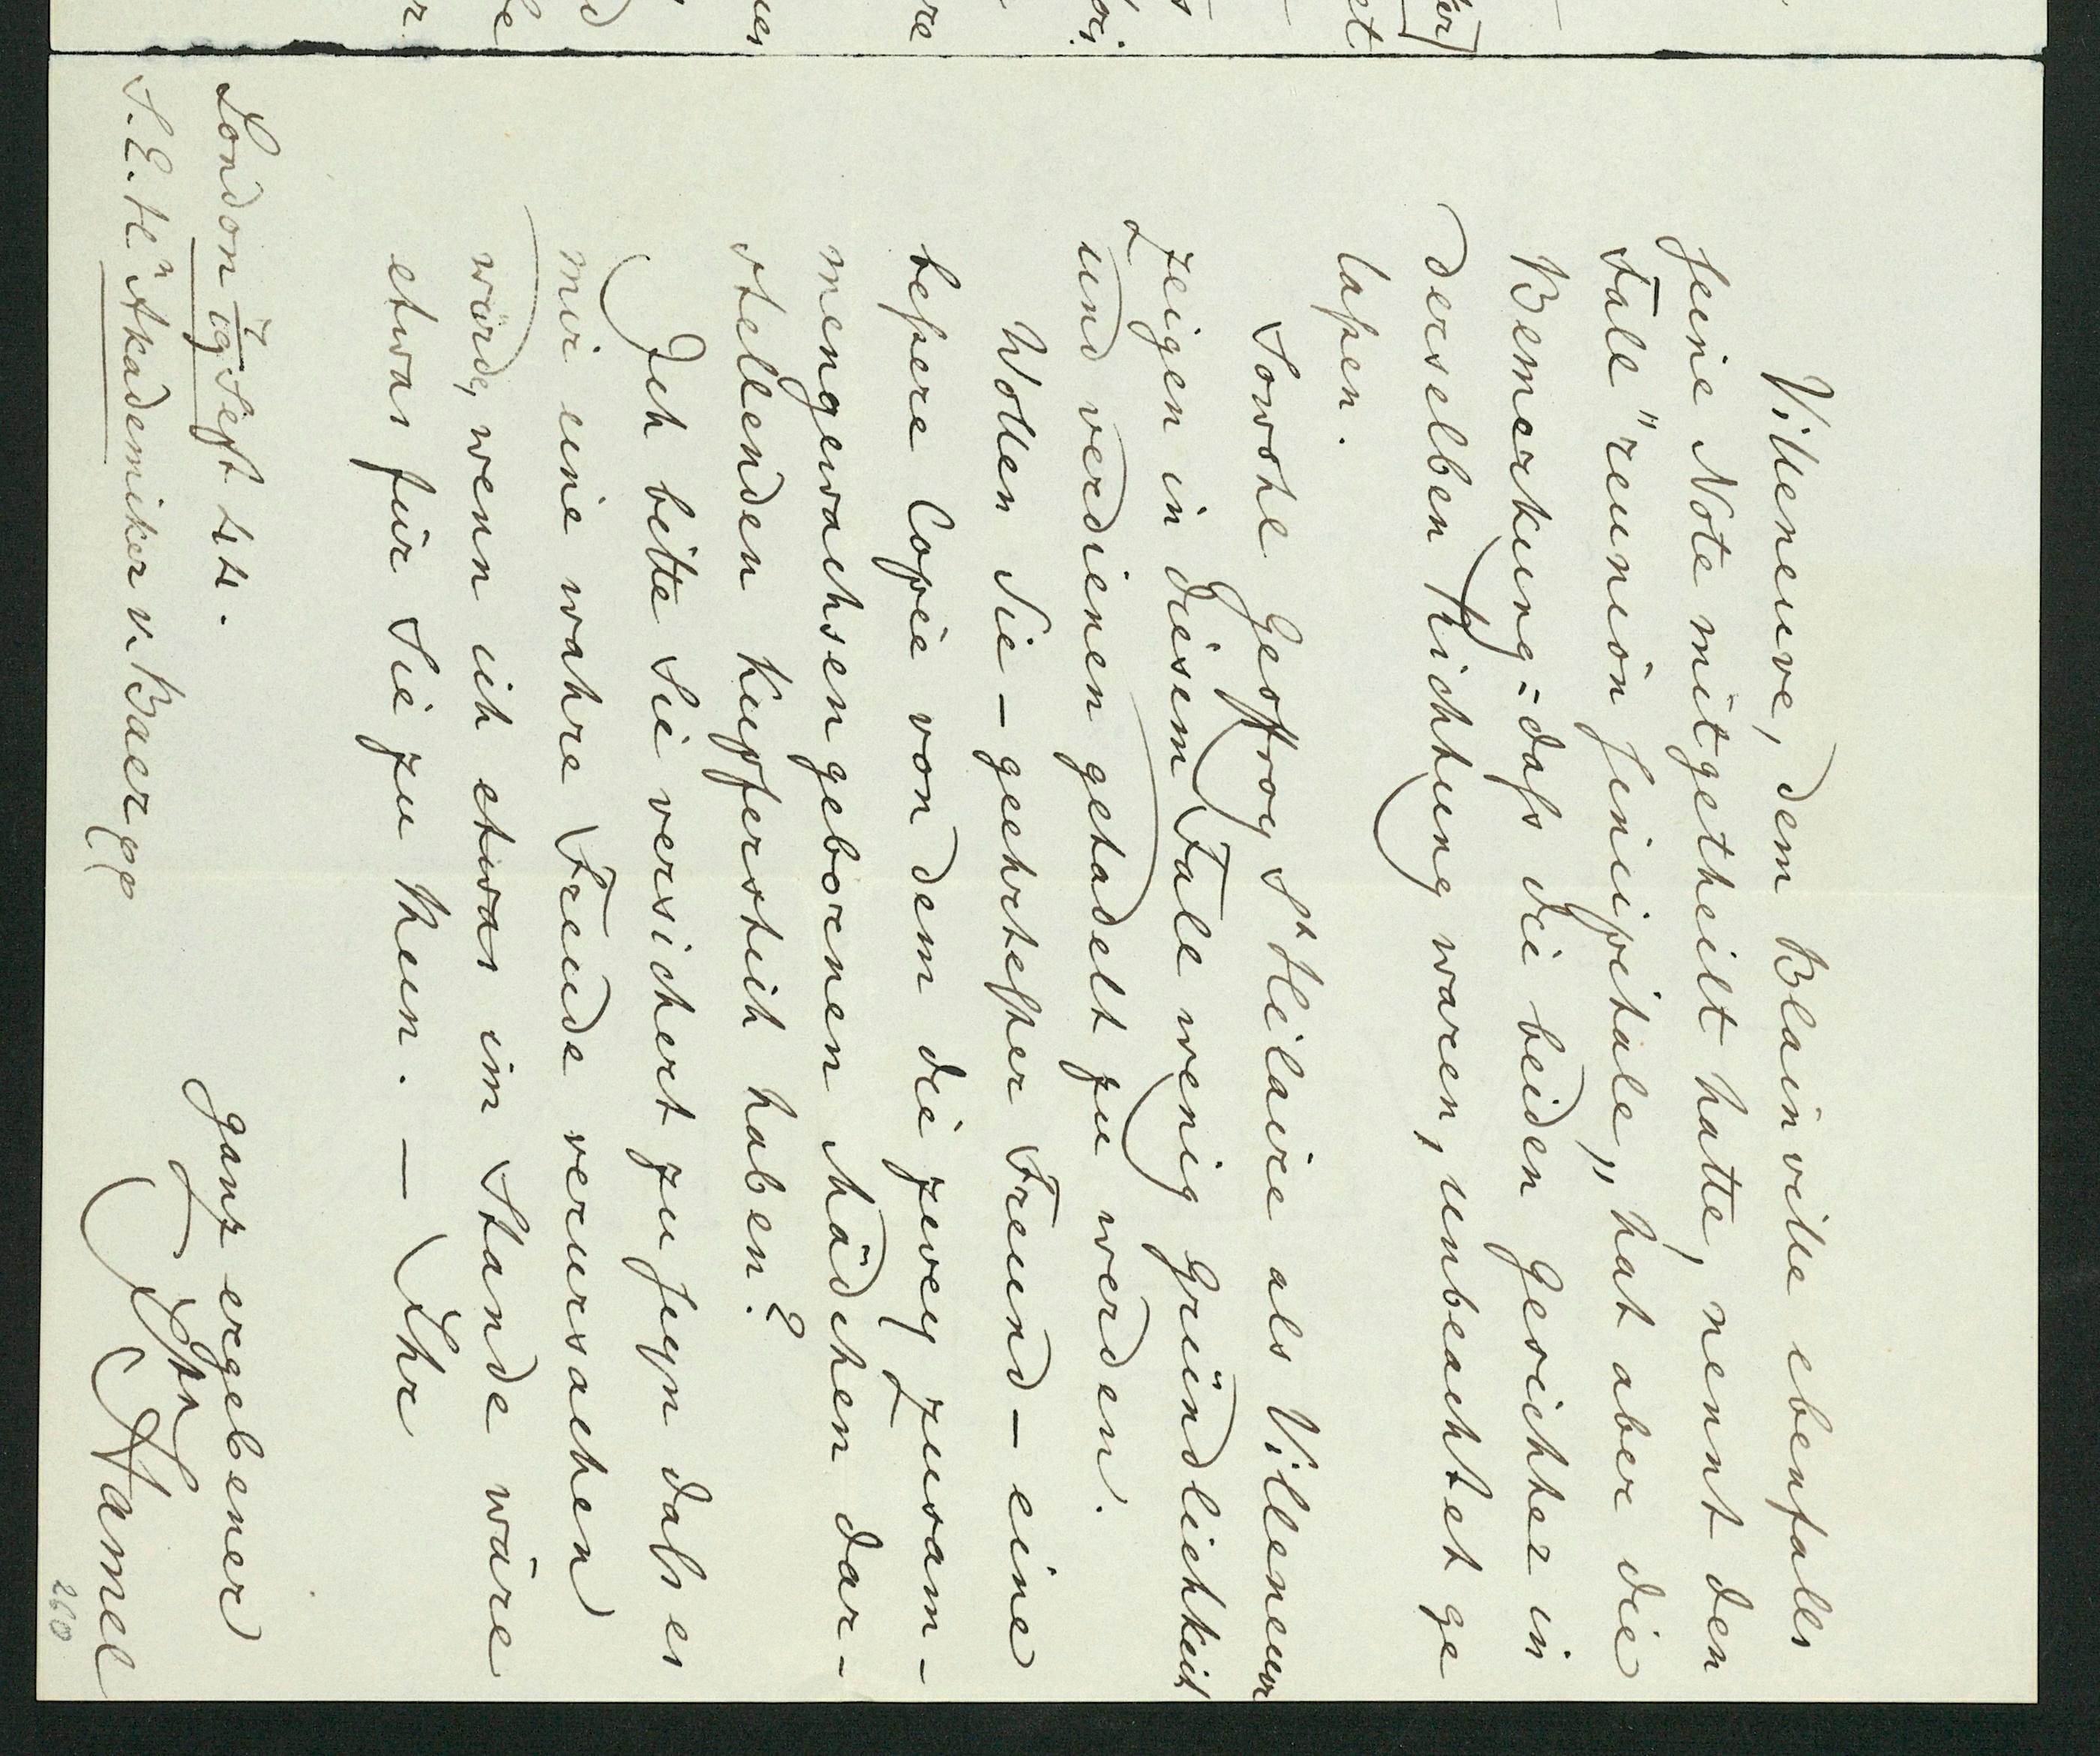 Villeneuve, dem Blainville ebenfalls
seine Note mitgetheilt hatte, nennt den
Fall "reunion sincipitale", hat aber die
Bemerkung: daſs die beiden Gesichter in
derselben Richtung waren, unbeachtet ge
laſsen.
Sowohl Geoffroy St Hilaire als Villeneuve
zeigen in diesem Falle wenig Gründlichkeit
und verdienen getadelt zu werden.
Wollen Sie – geehrtester Freund – eine
beſsere Copie von dem die zwey zusam-
mengewachsen gebornen Mädchen dar-
stellenden Kupferstich haben?
Ich bitte Sie versichert zu seyn daſs es
mir eine wahre Freude verursachen
würde, wenn ich etwas im Stande wäre
etwas für Sie zu thun. — Ihr
ganz ergebener
Hamel
London Sept 44.
S.E.H. Akademiker v. Baer pp
260